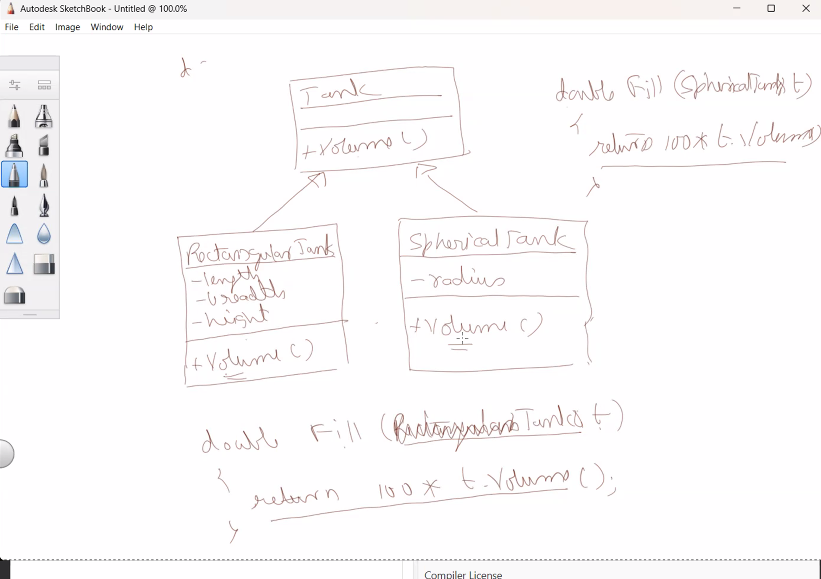 Autodesk SketchBook - Untitled @ 100.0%
File Edit Image Window Help
Tank
+Volume ()
double Fill (SphericalTank& t)
{
return 100 * t.Volume()
}
RectangularTank
-length
-breadth
-height
+Volume ()
SphericalTank
-radius
+Volume ()
double Fill (Tank& t)
{
return 100 * t.Volume ();
}
Compiler License